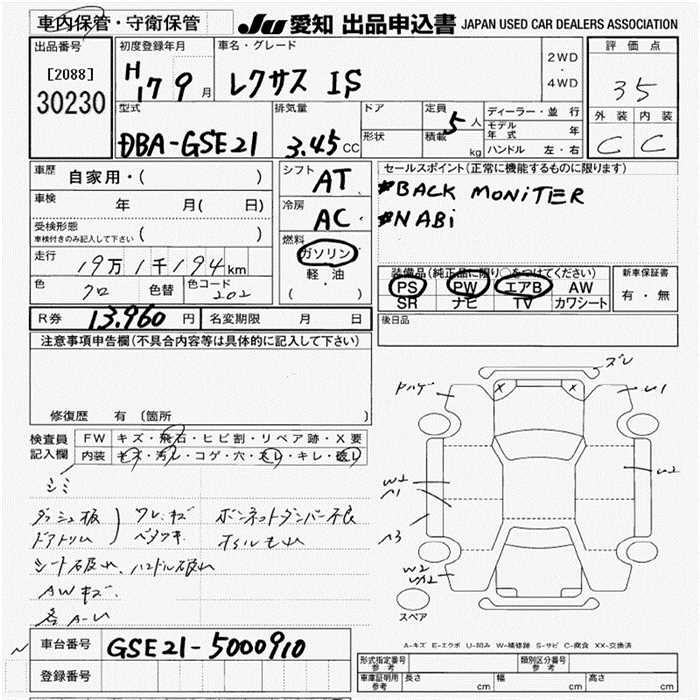 車内保管・守衛保管
JU 愛知 出品申込書 JAPAN USED CAR DEALERS ASSOCIATION
出品番号 初度登録年月 車名・グレード 評価点
[2088]
30230
H 17 9 月 レクサス IS 2WD ・ 4WD 35
型式 排気量 ドア 定員 ディーラー・並行 外装 内装
DBA-GSE21 3.45 CC 形状 積載 5 人 kg モデル年式 年 C C
ハンドル 左・右
車歴 自家用・( ) シフト AT セールスポイント(正常に機能するものに限ります)
車検 年 月( 日) 冷房 AC *BACK MONiTER
受検形態 車検付きのみ記入して下さい ( ) *NABi
走行 19万1千194km 燃料 ガソリン
軽・油
( )
装備品(純正品に限り○をつけてください) 新車保証書
色 クロ 色替 色コード 202 PS PW エアB AW 有・無
SR ナビ TV カワシート
R券 13,960 円 名変期限 月 日 後日品
注意事項申告欄(不具合内容等は具体的に記入して下さい)
修復歴 有 〔箇所 〕
検査員記入欄 FW キズ・飛石・ヒビ割・リペア跡・X要
内装 キズ・汚レ・コゲ・穴・スレ・キレ・破レ
シミ
ダッシュ板 ワレ、キズ ボンネットダンパー不良
ドアトリム ベタツキ オイルモレ
シート破れ、ハンドル破れ
AWキズ
各A-U
ズレ
ドハゲ
U1
W2
A1
U2
A3
W2
スペア
A-キズ E-エクボ U-凹み W-補修跡 S-サビ C-腐食 XX-交換済
車台番号 GSE21-5000910
登録番号
形式指定番号 参考 類別区分番号 参考
車庫証明用 参考 長さ cm 幅 cm 高さ cm